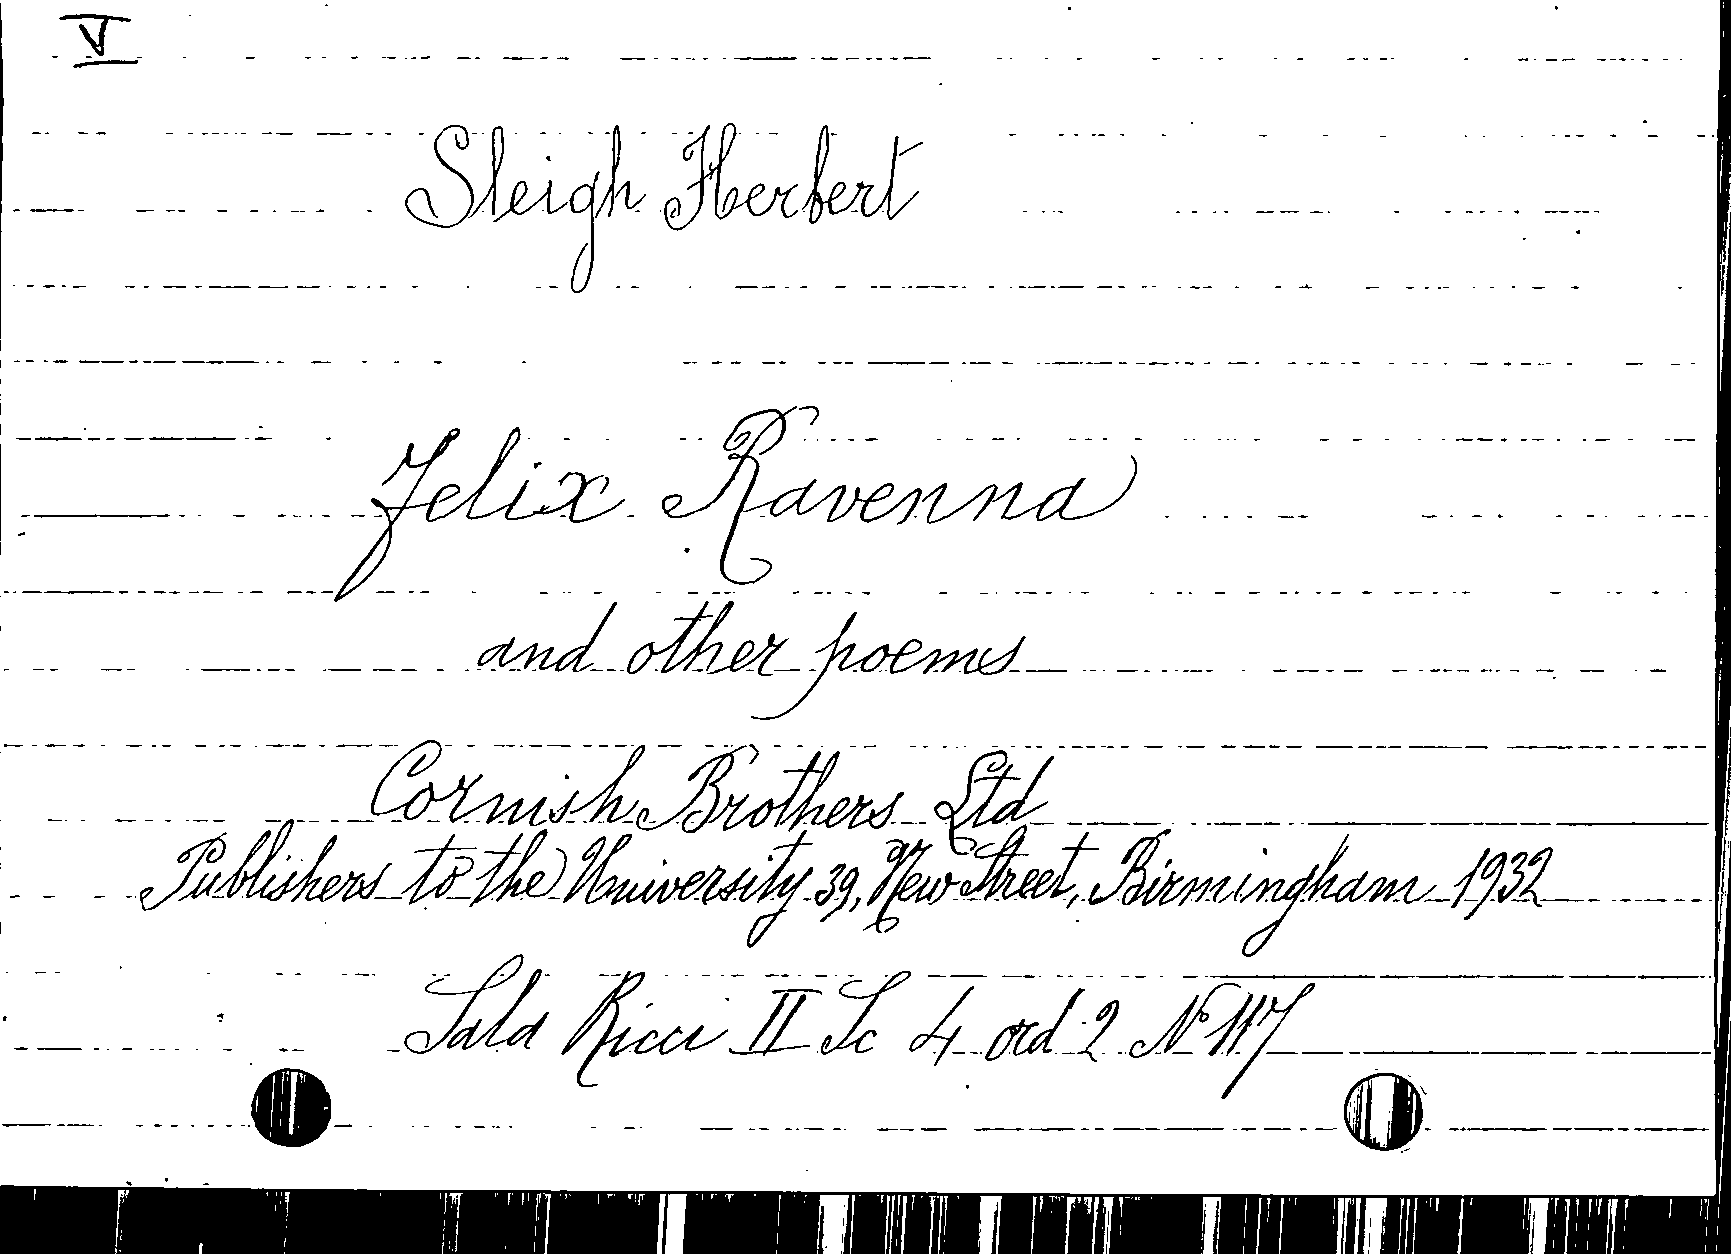 V
Sleigh Herbert
Felix Ravenna
and other poems
Cornish Brothers Ltd
Publishers to the University 39, New Street, Birmingham 1932
Sala Ricci II Sc 4 ord 2 N 117